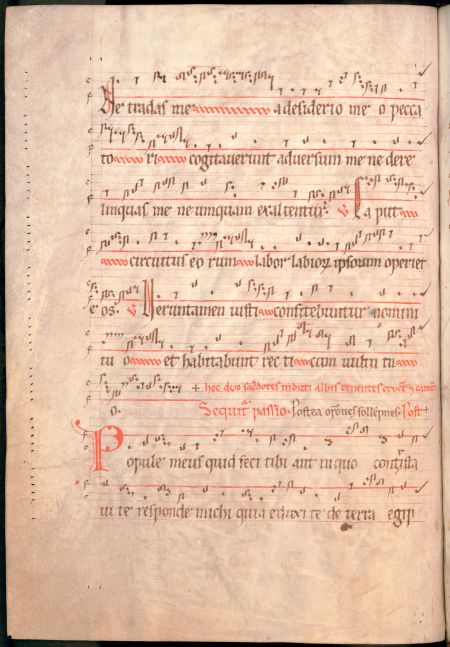 Ne tradas me a desiderio me o pecca
to ri cogitaverunt adversum me ne dere
linquas me ne umquam exaltentur. V Caput
circuitus eorum labor labiorꝫ ipsorum operiet
eos. V Veruntamen iusti confitebuntur nomini
tuo et habitabunt recti cum vultu tu
o. + hec duo sacdotes induti albis
Sequit passio. Postea orones sollepnes. Post +
Popule meus quid feci tibi aut in quo contrista
vi te responde michi quia eduxi te de terra egip